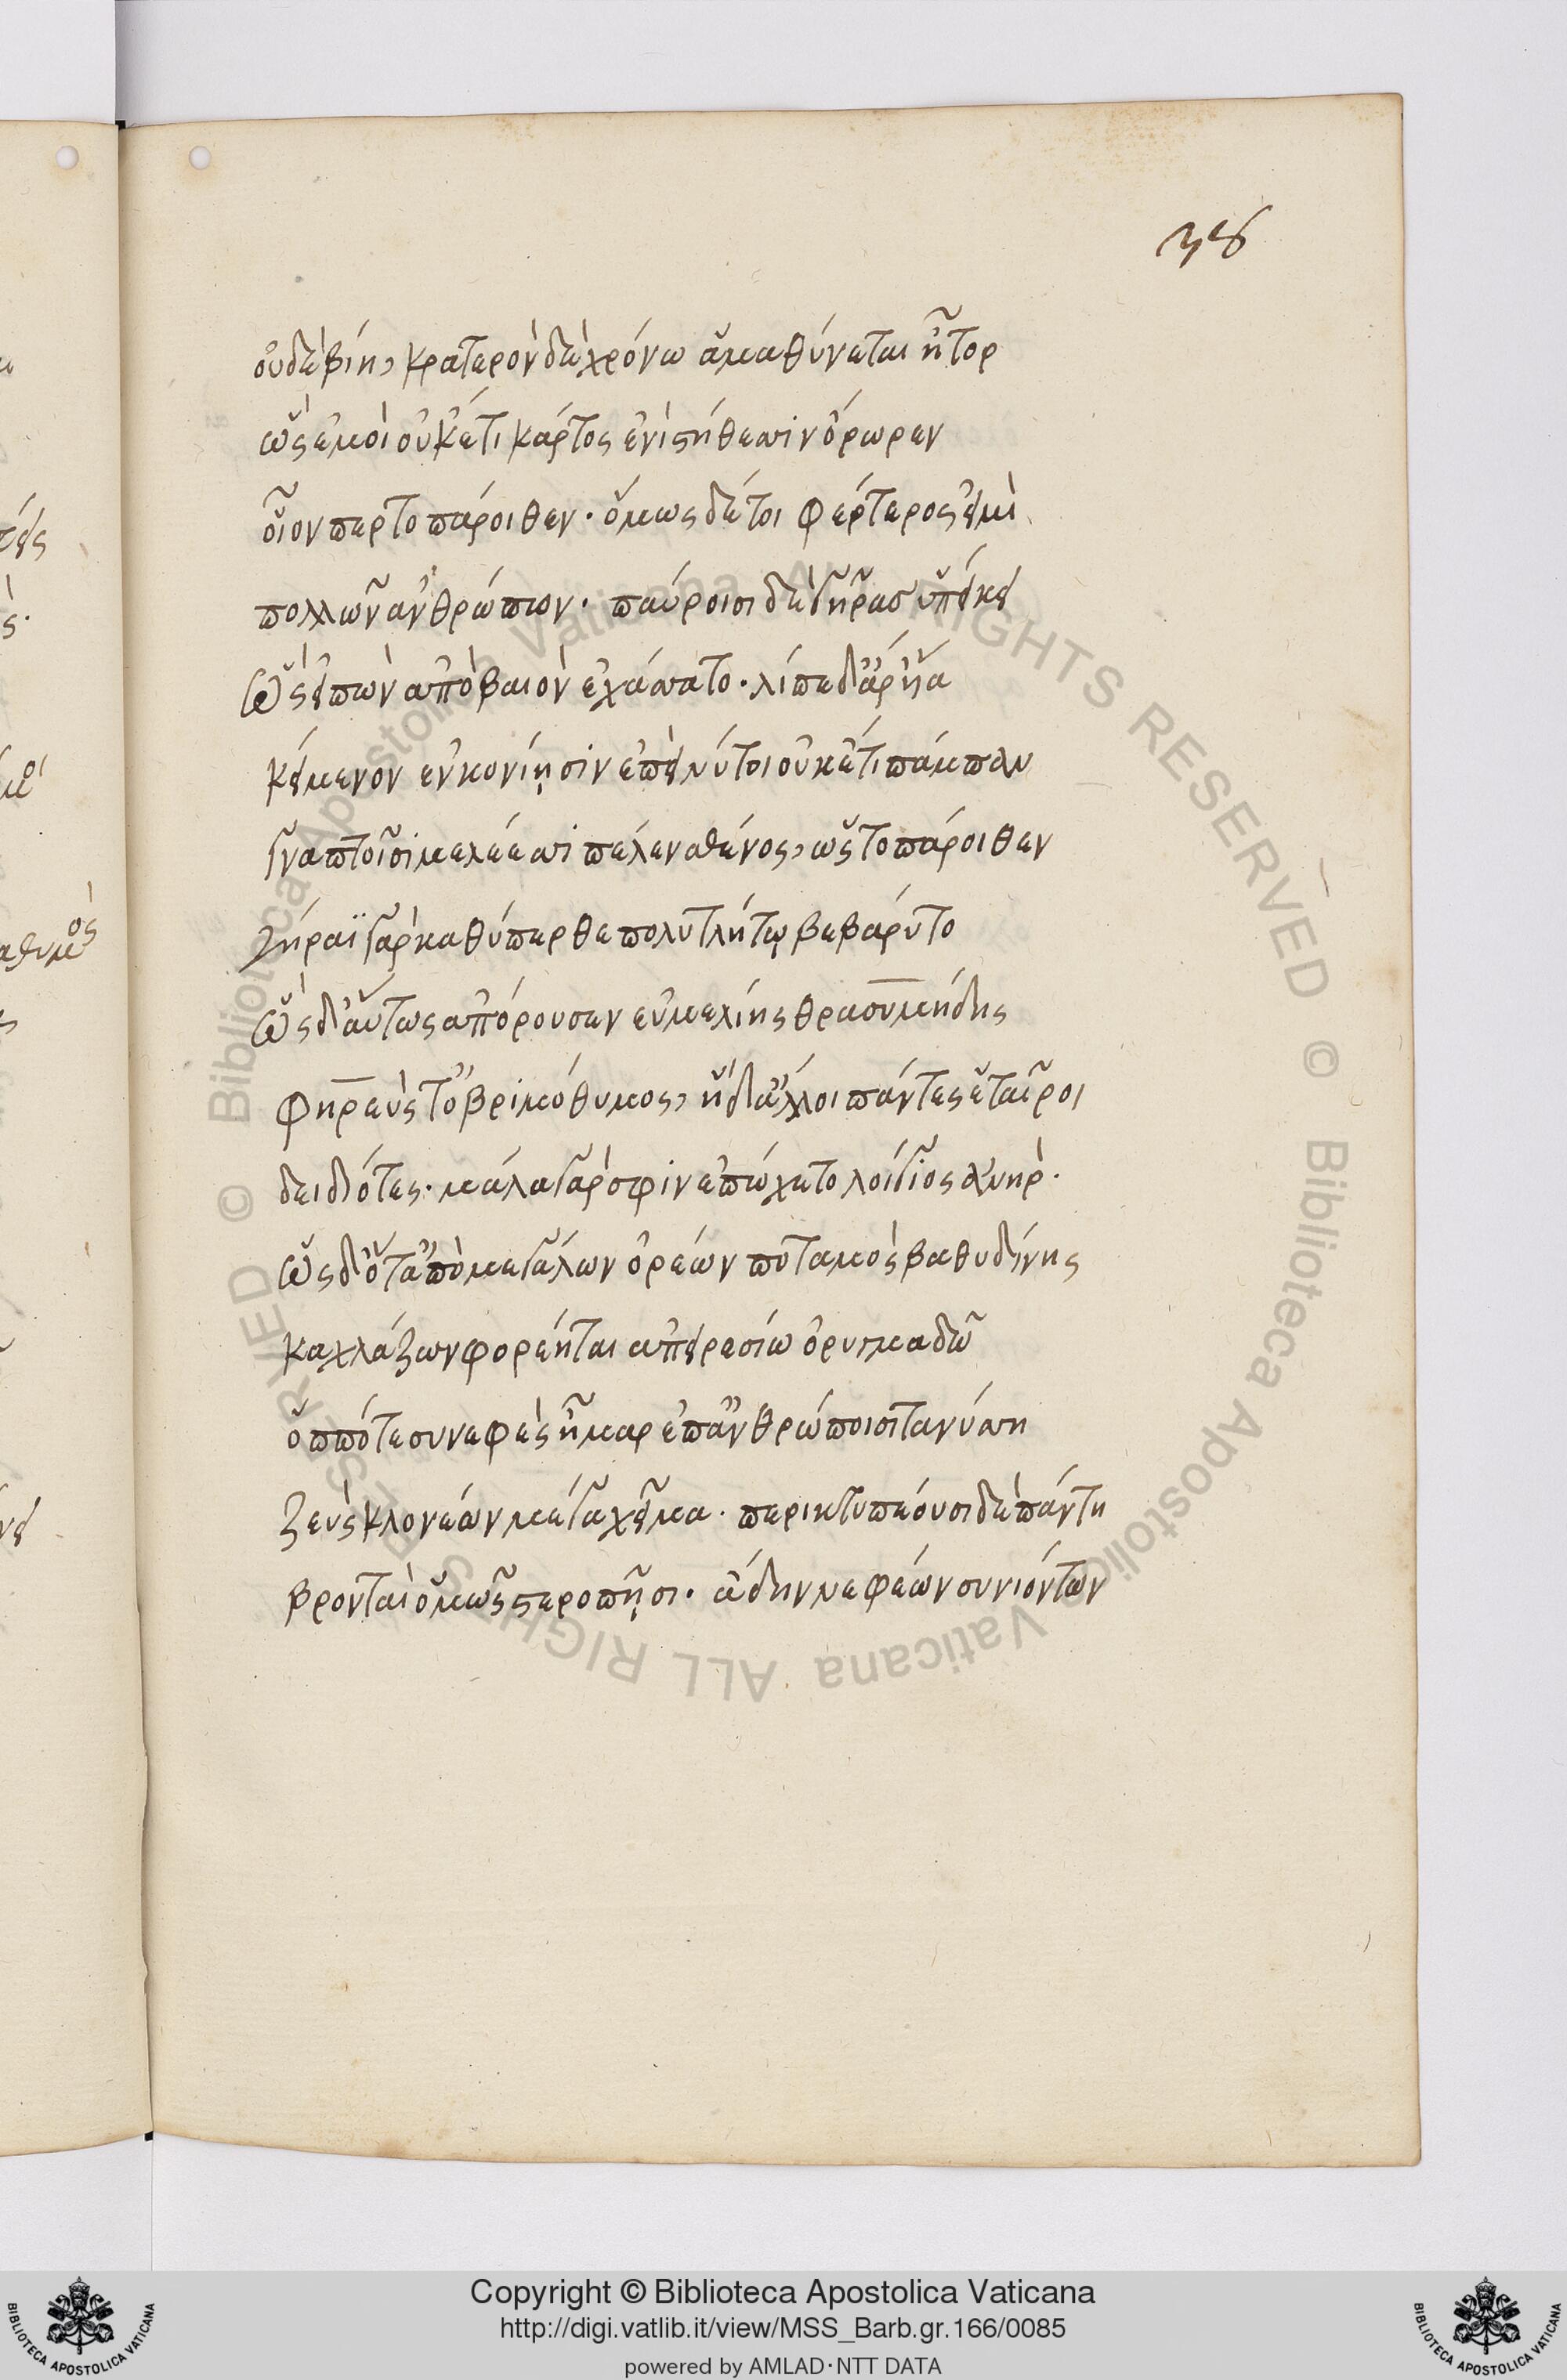 38
οὐδὲ βίη, κρατερὸν δὲ χρόνω ἀμαθύνεται ἦτορ
ὣς ἐμοὶ οὐκέτι κάρτος ἐνὶ στήθεσσιν ὄρωρεν
οἷον περ τοπάροιθεν· ὅμως δέ τοι φέρτερος εἰμὶ
πολλῶν ἀνθρώπων· παύροισι δὲ γῆρας ὑπείκει
Ὣς εἰπὼν ἀπὸ βαιὸν ἐχάσσατο· λίπε δ' ἄρ υἷα
κείμενον ἐν κονίῃσιν ἐπεὶ νύ τοι οὐκέτι πάμπαν
γναπτοῖσι μελέεσσι πέλεν σθένος, ὡς τοπάροιθεν
γήραϊ γὰρ καθύπερθε πολυτλήτῳ βεβάρυτο
Ὣς δ' αὔτως ἀπόρουσεν ἐϋμελίης θρασυμήδης
φηρεύς τ' ὀβριμόθυμος, ἠδ' ἄλλοι πάντες ἑταῖροι
δειδιότες· μάλα γάρ σφιν ἐπώχετο λοίγιος ἀνήρ·
Ὡς δ' ὅτ' ἀπὸ μεγάλων ὀρέων ποταμὸς βαθυδίνης
καχλάζων φορέηται ἀπειρεσίω ὀρυμαδῶ
ὁππότε συνεφὲς ἦμαρ ἐπ' ἀνθρώποισι τανύσση
ζεὺς κλονέων μέγα χεῖμα· περικτυπέουσι δὲ πάντη
βρονταὶ ὁμῶς στεροπῇσι· ἄδην νεφέων συνιόντων
Copyright © Biblioteca Apostolica Vaticana
http://digi.vatlib.it/view/MSS_Barb.gr.166/0085
powered by AMLAD·NTT DATA